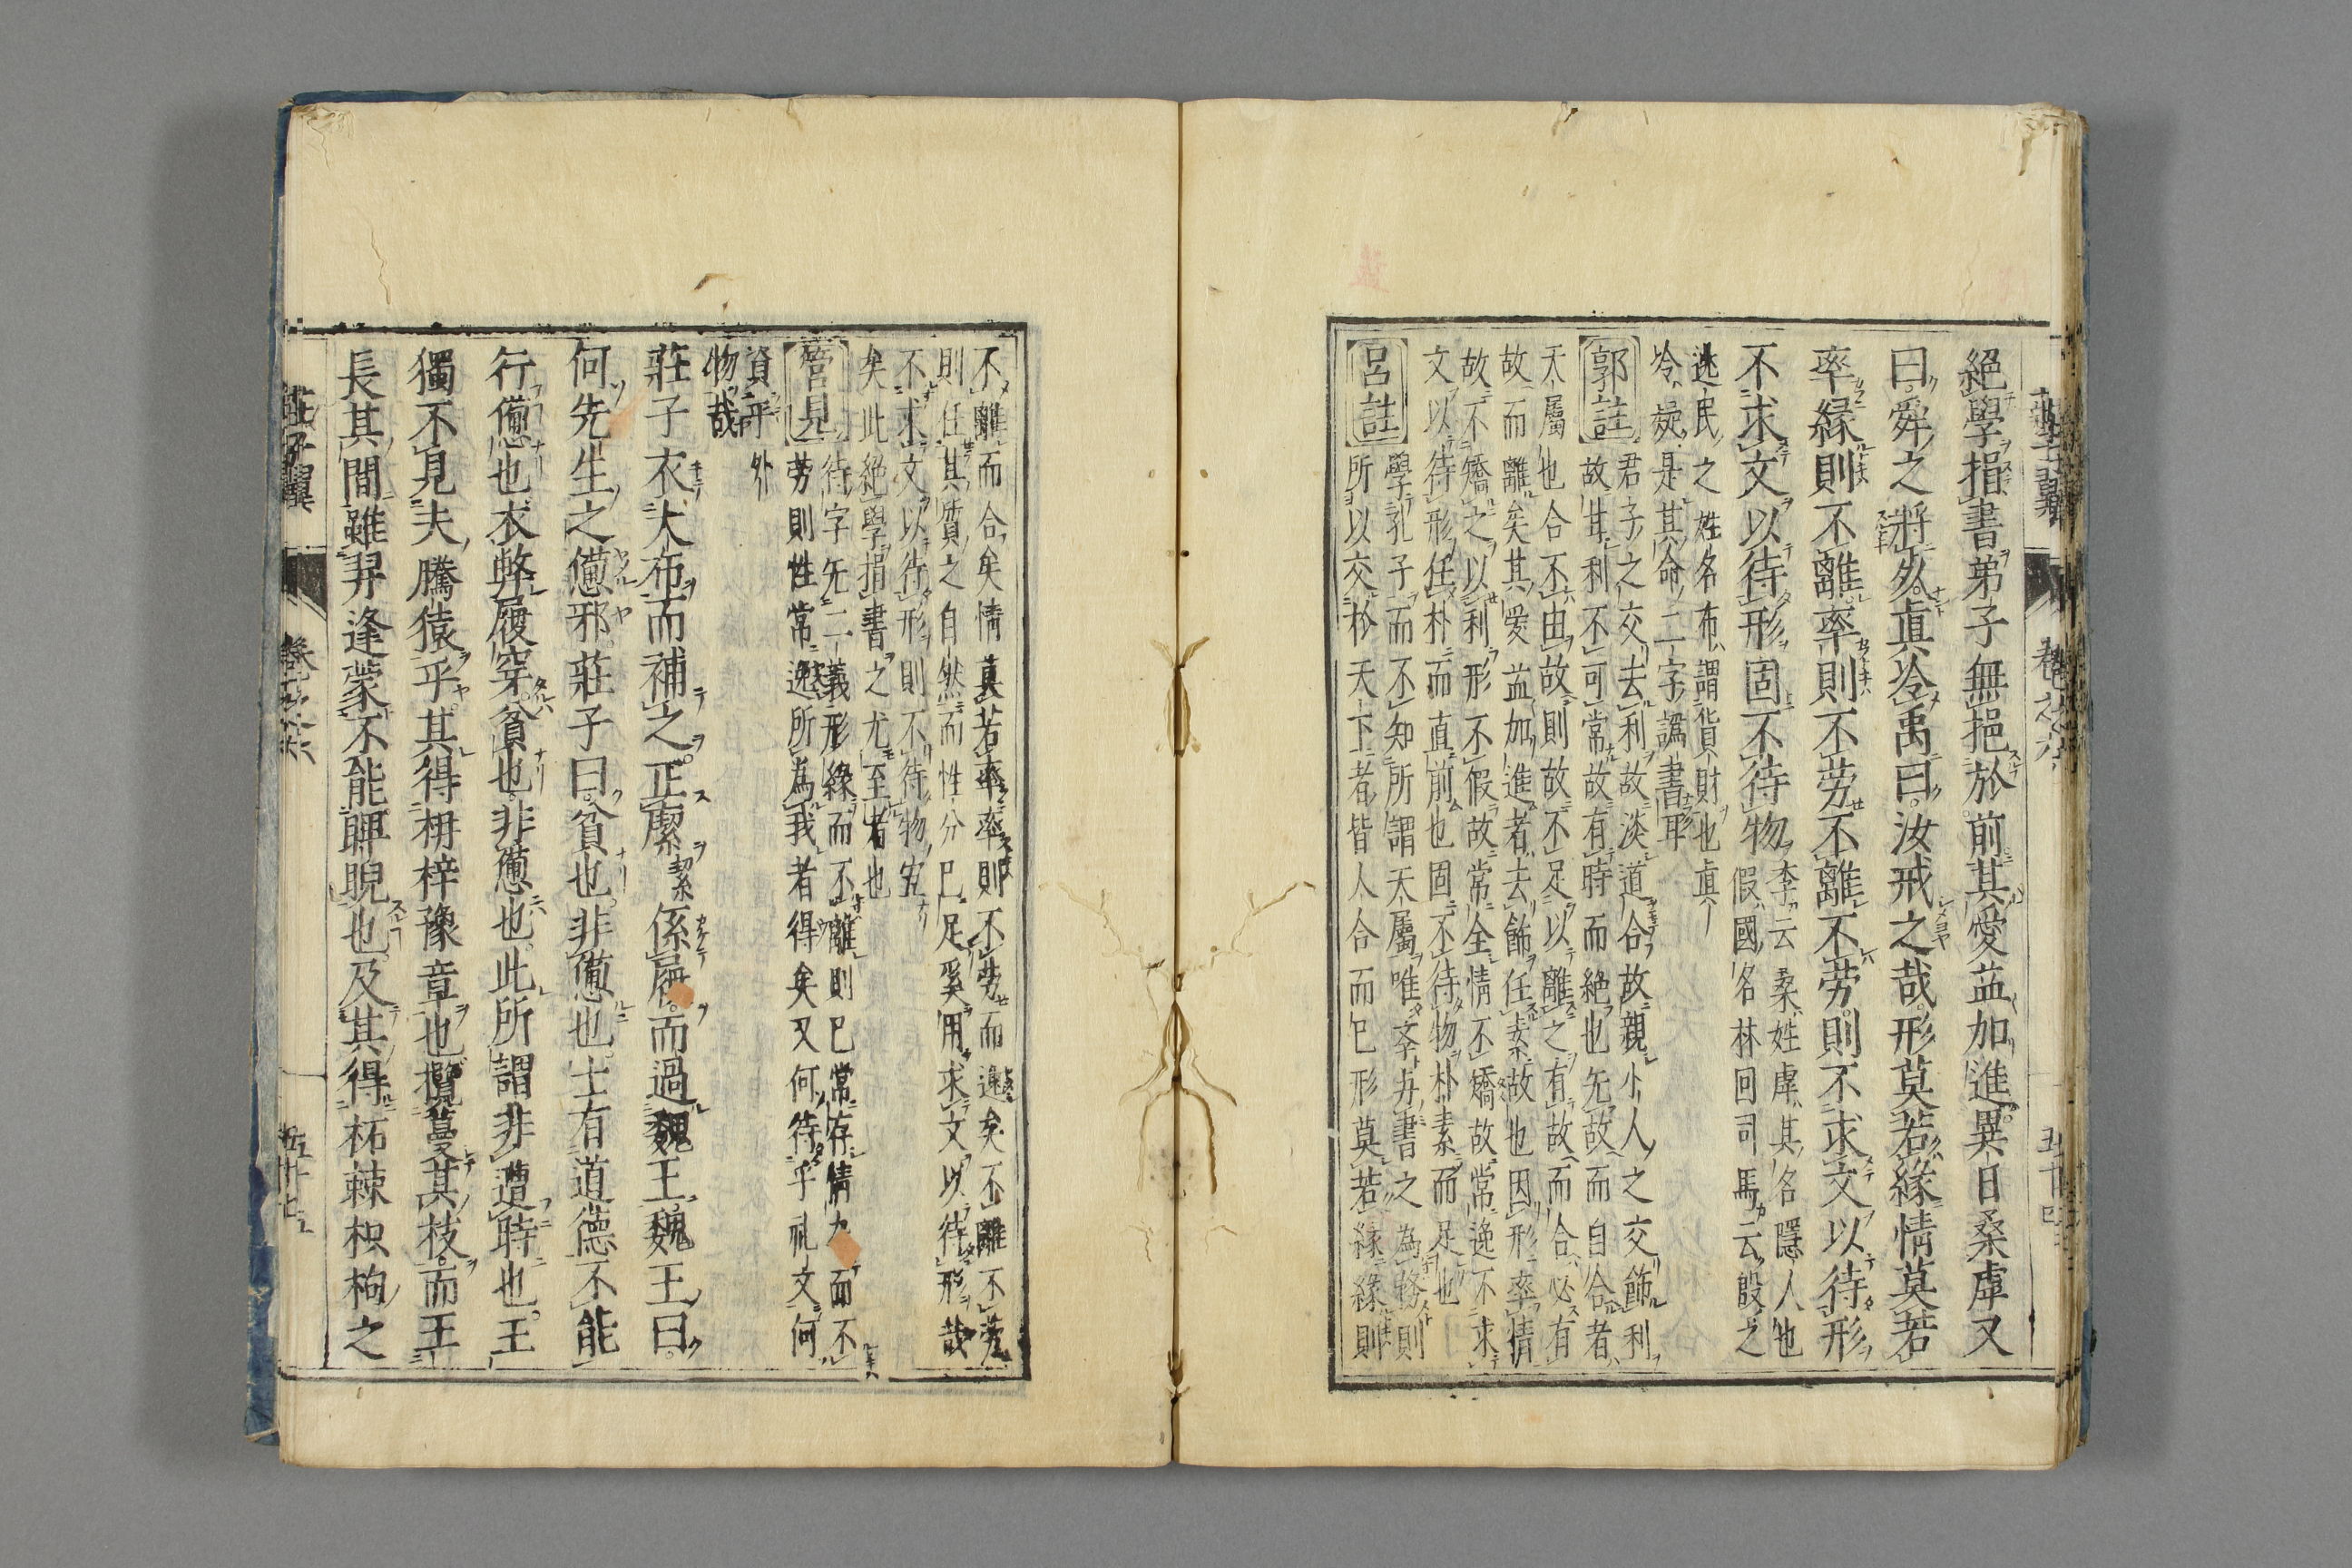 莊子翼 卷之六
絕學捐書弟子無挹於前其愛益加進異日桑虖又
曰舜之將死眞冷禹曰汝戒之哉形莫若緣情莫若
率緣則不離率則不勞不離不勞則不求文以待形
不求文以待形固不待物
李云桑姓虖其名隱人也
假國名林回司馬云殷之
逃民之姓名布謂貨財也眞
冷疑是其命二字譌書耳
郭註
君子之交去利故淡道合故親小人之交飾利
故甘利不可常故有時而絕也无故而自合者
天屬也合不由故則故不足以離之有故而合必有
故而離矣其愛益加進者去飾任素故也因形率情
故不矯之以利形不假故常全情不矯故常逸不求
文以待形任朴而直前也固不待物朴素而足也
呂註
學孔子而不知所謂天屬唯李卉書之為務則
所以交於天下者皆人合而已形莫若緣緣則
不離而合矣情莫若率率則不勞而逸矣不離不勞
則任其質之自然而性分已足奚用求文以待形哉
不求文以待形則不待物宜
矣此絕學捐書之尤至者也
管見
待字无二義形緣而不離則已常存情力而不
勞則性常逸所為我者得矣又何待乎禮文何
資乎外
物哉
莊子衣大布而補之正緳絜係履而過魏王魏王曰
何先生之憊邪莊子曰貧也非憊也士有道德不能
行憊也衣弊履穿貧也非憊也此所謂非遭時也王
獨不見夫騰猿乎其得枏梓豫章也攬蔓其枝而王
長其間雖羿逢蒙不能眄睨也及其得柘棘枳枸之
莊子翼 卷之六